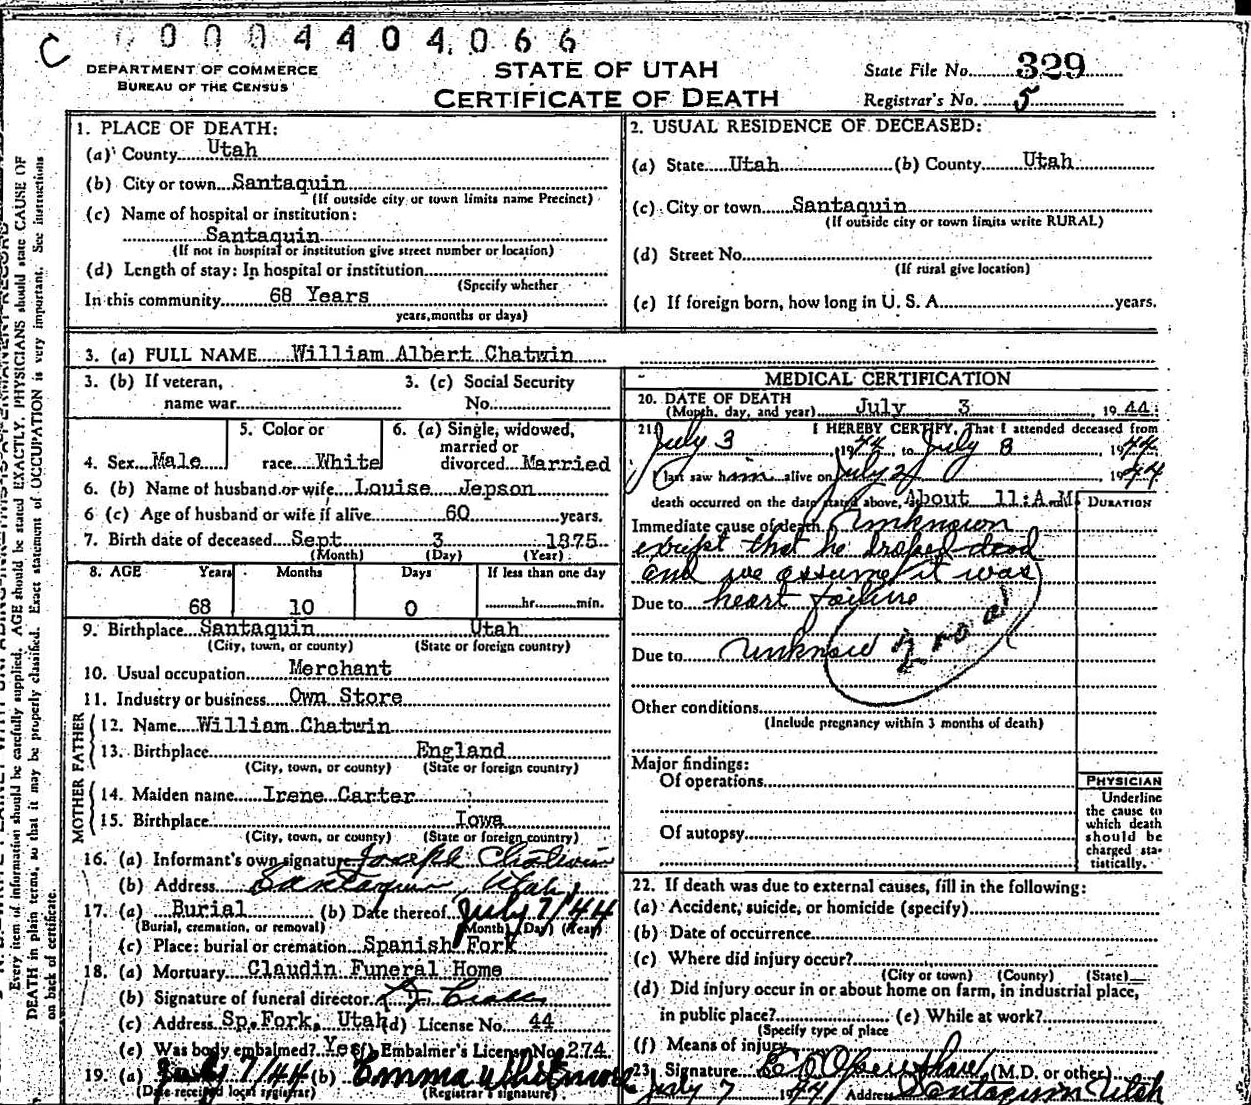 C 0 0 0 4 4 0 4 0 6 6
DEPARTMENT OF COMMERCE
BUREAU OF THE CENSUS
STATE OF UTAH
CERTIFICATE OF DEATH
State File No. 329
Registrar's No. 5
1. PLACE OF DEATH:
(a) County Utah
(b) City or town Santaquin
(If outside city or town limits name Precinct)
(c) Name of hospital or institution:
Santaquin
(If not in hospital or institution give street number or location)
(d) Length of stay: In hospital or institution
(Specify whether
In this community 68 Years
years, months or days)
2. USUAL RESIDENCE OF DECEASED:
(a) State Utah (b) County Utah
(c) City or town Santaquin
(If outside city or town limits write RURAL)
(d) Street No.
(If rural give location)
(e) If foreign born, how long in U. S. A. years.
3. (a) FULL NAME William Albert Chatwin
3. (b) If veteran,
name war
3. (c) Social Security
No.
4. Sex Male
5. Color or
race White
6. (a) Single, widowed,
married or
divorced Married
6. (b) Name of husband or wife Louise Jepson
6 (c) Age of husband or wife if alive 60 years.
7. Birth date of deceased Sept 3 1875
(Month) (Day) (Year)
8. AGE Years Months Days If less than one day
68 10 0 hr. min.
9. Birthplace Santaquin Utah
(City, town, or county) (State or foreign country)
10. Usual occupation Merchant
11. Industry or business Own Store
FATHER
12. Name William Chatwin
13. Birthplace England
(City, town, or county) (State or foreign country)
MOTHER
14. Maiden name Irene Carter
15. Birthplace Iowa
(City, town, or county) (State or foreign country)
16. (a) Informant's own signature Joseph Chatwin
(b) Address Santaquin, Utah
17. (a) Burial (b) Date thereof July 7/44
(Burial, cremation, or removal) (Month) (Day) (Year)
(c) Place: burial or cremation Spanish Fork
18. (a) Mortuary Claudin Funeral Home
(b) Signature of funeral director
(c) Address Sp. Fork, Utah (d) License No. 44
(e) Was body embalmed? Yes (f) Embalmer's License No. 274
19. (a) July 7/44 (b) Emma Whitmore
(Date received local registrar) (Registrar's signature)
MEDICAL CERTIFICATION
20. DATE OF DEATH
(Month, day, and year) July 3, 1944
21. I HEREBY CERTIFY, That I attended deceased from
July 3 1944, to July 8, 1944
I last saw him alive on July 2, 1944
death occurred on the date stated above, About 11:A.M.
DURATION
Immediate cause of death Unknown
except that he droped dead
and we assume it was
Due to heart failure
Due to
Other conditions
(Include pregnancy within 3 months of death)
Major findings:
Of operations
Of autopsy
PHYSICIAN
Underline
the cause to
which death
should be
charged sta-
tistically.
22. If death was due to external causes, fill in the following:
(a) Accident, suicide, or homicide (specify)
(b) Date of occurrence
(c) Where did injury occur?
(City or town) (County) (State)
(d) Did injury occur in or about home on farm, in industrial place,
in public place? (e) While at work?
(Specify type of place
(f) Means of injury
23. Signature (M.D. or other)
July 7 1944 Address Santaquin Utah
Every item of information should be carefully supplied. AGE should be stated EXACTLY. PHYSICIANS should state CAUSE OF
DEATH in plain terms, so that it may be properly classified. Exact statement of OCCUPATION is very important. See instructions
on back of certificate.